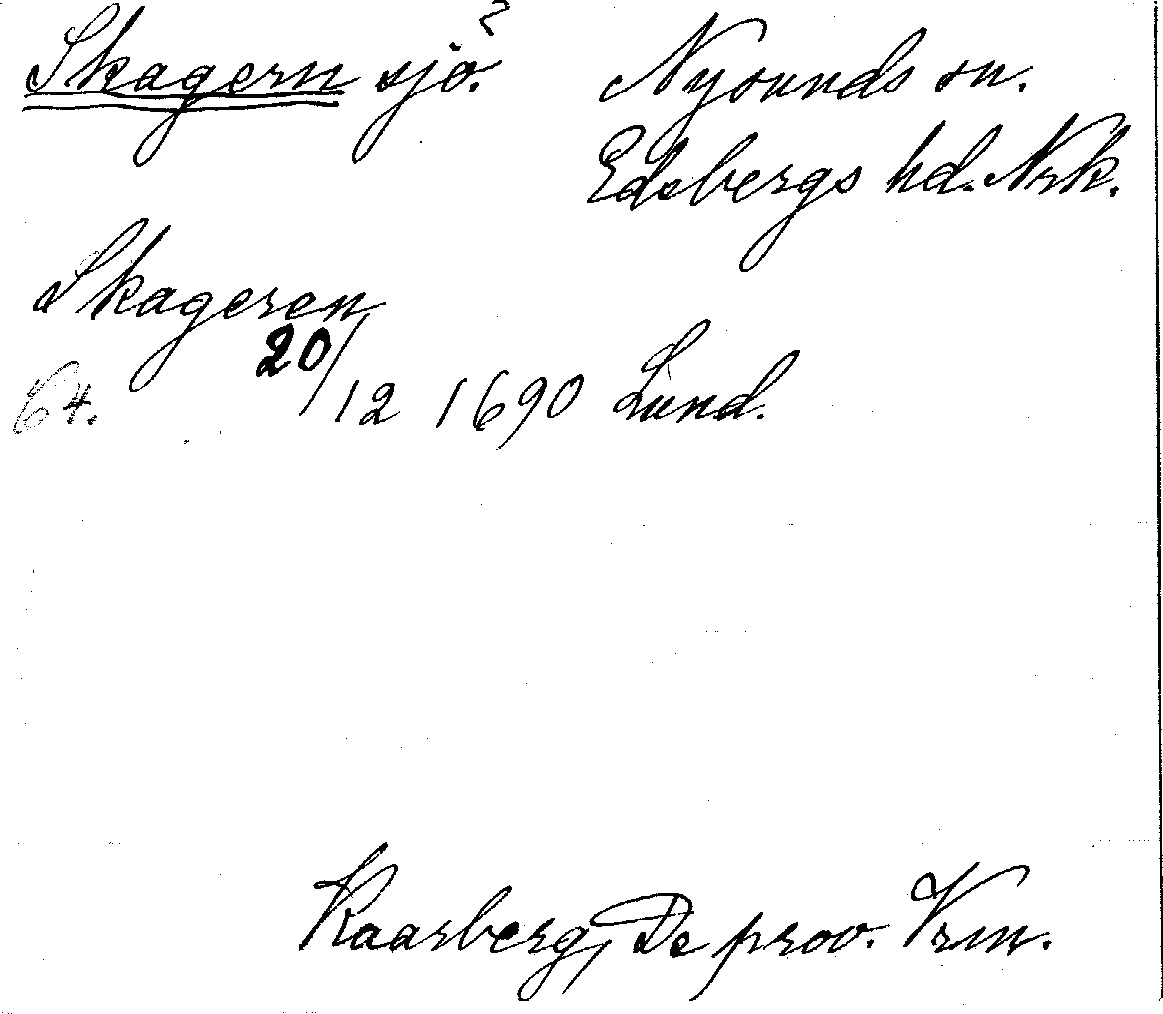 Skagern sjö? Nysunds sn.
Edsbergs hd. Nrk.
Skageren
64. 20/12 1690 Lund.
Kaarberg, De prov. Vrm.